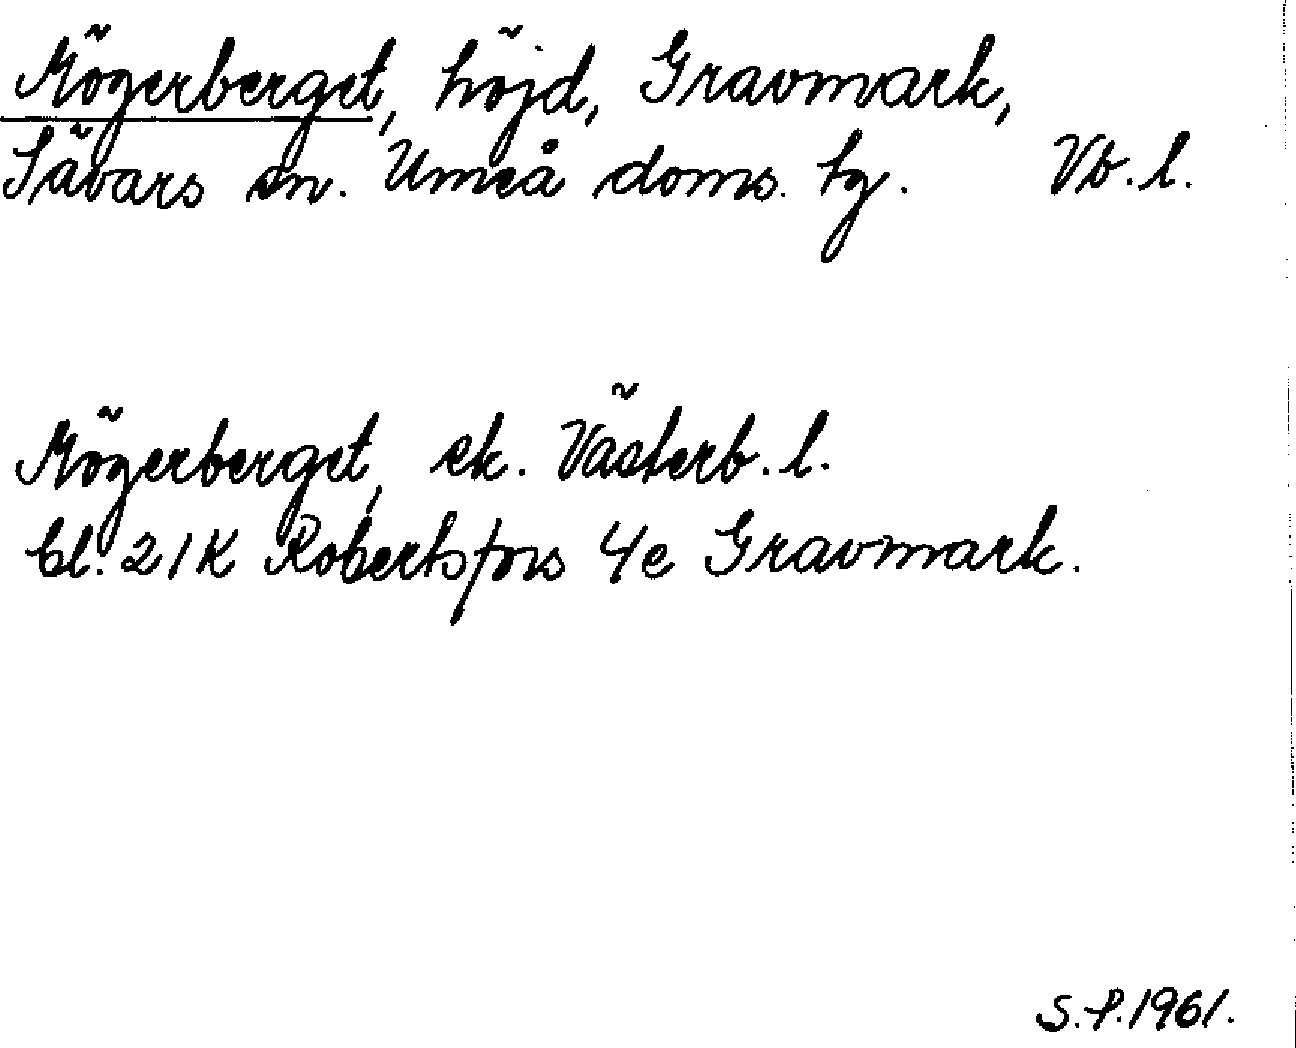 Mögerberget, höjd, Gravmark,
Sävars sn. Umeå doms. tg. Vb. l.
Mögerberget, ek. Västerb. l.
bl. 21K Robertsfors 4e Gravmark.
S.P. 1961.